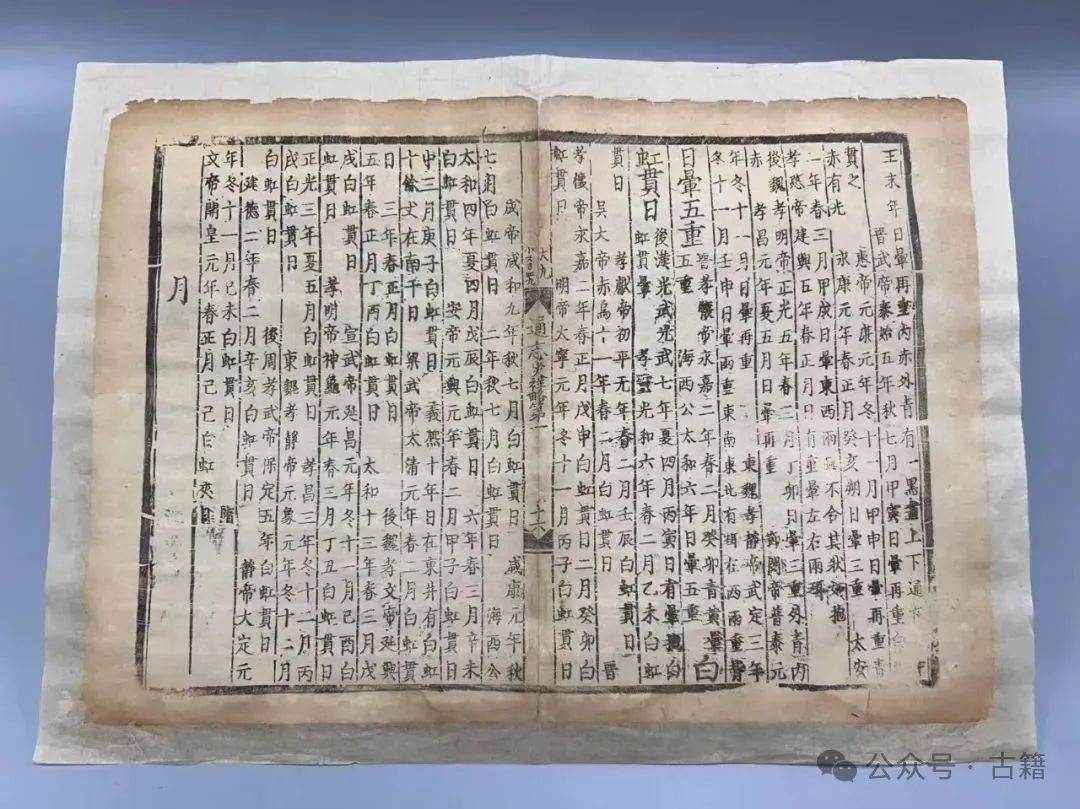 王末年日暈再重內赤外青有一黑晝上下通在
貫之 晉武帝泰始五年秋七月甲寅日暈再重白
赤有光 惠帝元康元年冬十一月甲申日暈再重青
永康元年春正月癸亥朔日暈三重 太安
二年春三月甲戌日暈東西兩不合其狀
孝愍帝建興五年春正月日有重暈左右兩珥
後魏孝明帝正光五年春三月丁卯日暈三重外青內
赤 孝昌元年夏五月日暈再重 前閔帝普泰元
年冬十一月日暈再重 東魏孝靜帝武定三年
冬十一月壬申日暈兩重東南東北有珥在西兩重背
日暈五重 晉孝懷帝永嘉二年春二月癸卯青黃暈
五重 海西公太和六年日暈五重
白虹貫日 後漢光武光武七年夏四月丙寅日有暈白
虹貫暈 孝靈光和六年春二月乙未白虹
貫日 孝獻帝初平元年春二月壬辰白虹貫日
吳大帝赤烏十一年春二月白虹貫日 晉
孝懷帝永嘉二年春正月戊申白虹貫日二月癸卯白
虹貫日 明帝大寧元年冬十一月丙子白虹貫日
通志災祥畧第一
十六
成帝咸和九年秋七月白虹貫日 咸康元年秋
七月白虹貫日 二年秋七月白虹貫日 海西公
太和四年夏四月戊辰白虹貫日 六年春三月辛未
白虹貫日 安帝元興元年春二月甲子白虹貫日
申三月庚子白虹貫日 義熙十年日在東井有白虹
十餘丈在南干日 梁武帝太清元年春二月白虹貫
日 三年春正月丁丙白虹貫日 後魏孝文帝延興
五年春正月丁丙白虹貫日 太和十三年春三月戊
戌白虹貫日 宣武帝延昌元年冬十一月己酉白
虹貫日 孝明帝神龜元年春三月丁丑白虹貫日
正光三年夏五月白虹貫日 孝昌三年冬十二月丙
戌白虹貫日 東魏孝靜帝元象元年冬十二月
白虹貫日 後周孝武帝保定五年白虹貫日
建德二年春二月辛亥白虹貫日 靜帝大定元
年冬十一月己未白虹貫日 隋
文帝開皇元年春正月己己白虹夾日
月
公众号·古籍